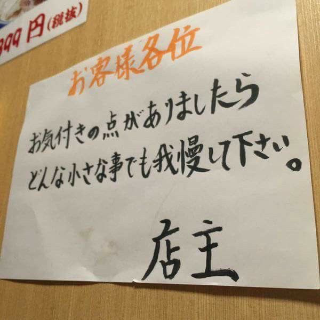 399円(税抜)
お客様各位
お気付きの点がありましたら
どんな小さな事でも我慢して下さい。
店主